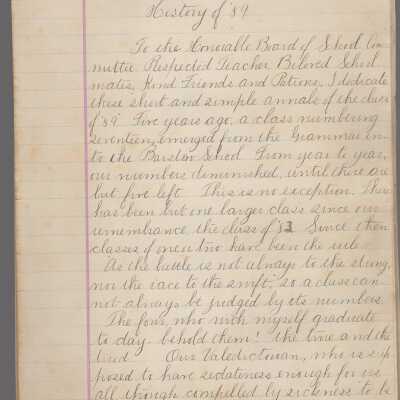 History of '89
To the Honorable Board of School Com
mittee Respected Teacher, Beloved School
mates, Kind Friends and Patrons, I dedicate
these short and simple annals of the class
of '89. Five years ago, a class numbering
seventeen, emerged from the Grammar in-
to the Barstow School. From year to year,
our numbers diminished, until there are
but five left. This is no exception. There
has been but one larger class since our
remembrance the class of '83. Since then
classes of one or two have been the rule.
As the battle is not always to the strong,
nor the race to the swift, so a class can
not always be judged by its numbers.
The four who with myself graduate
to day behold them! the time and the
tried. Our Valedictorian, who is sup
posed to have sedateness enough for us
all though compelled by sickness to be